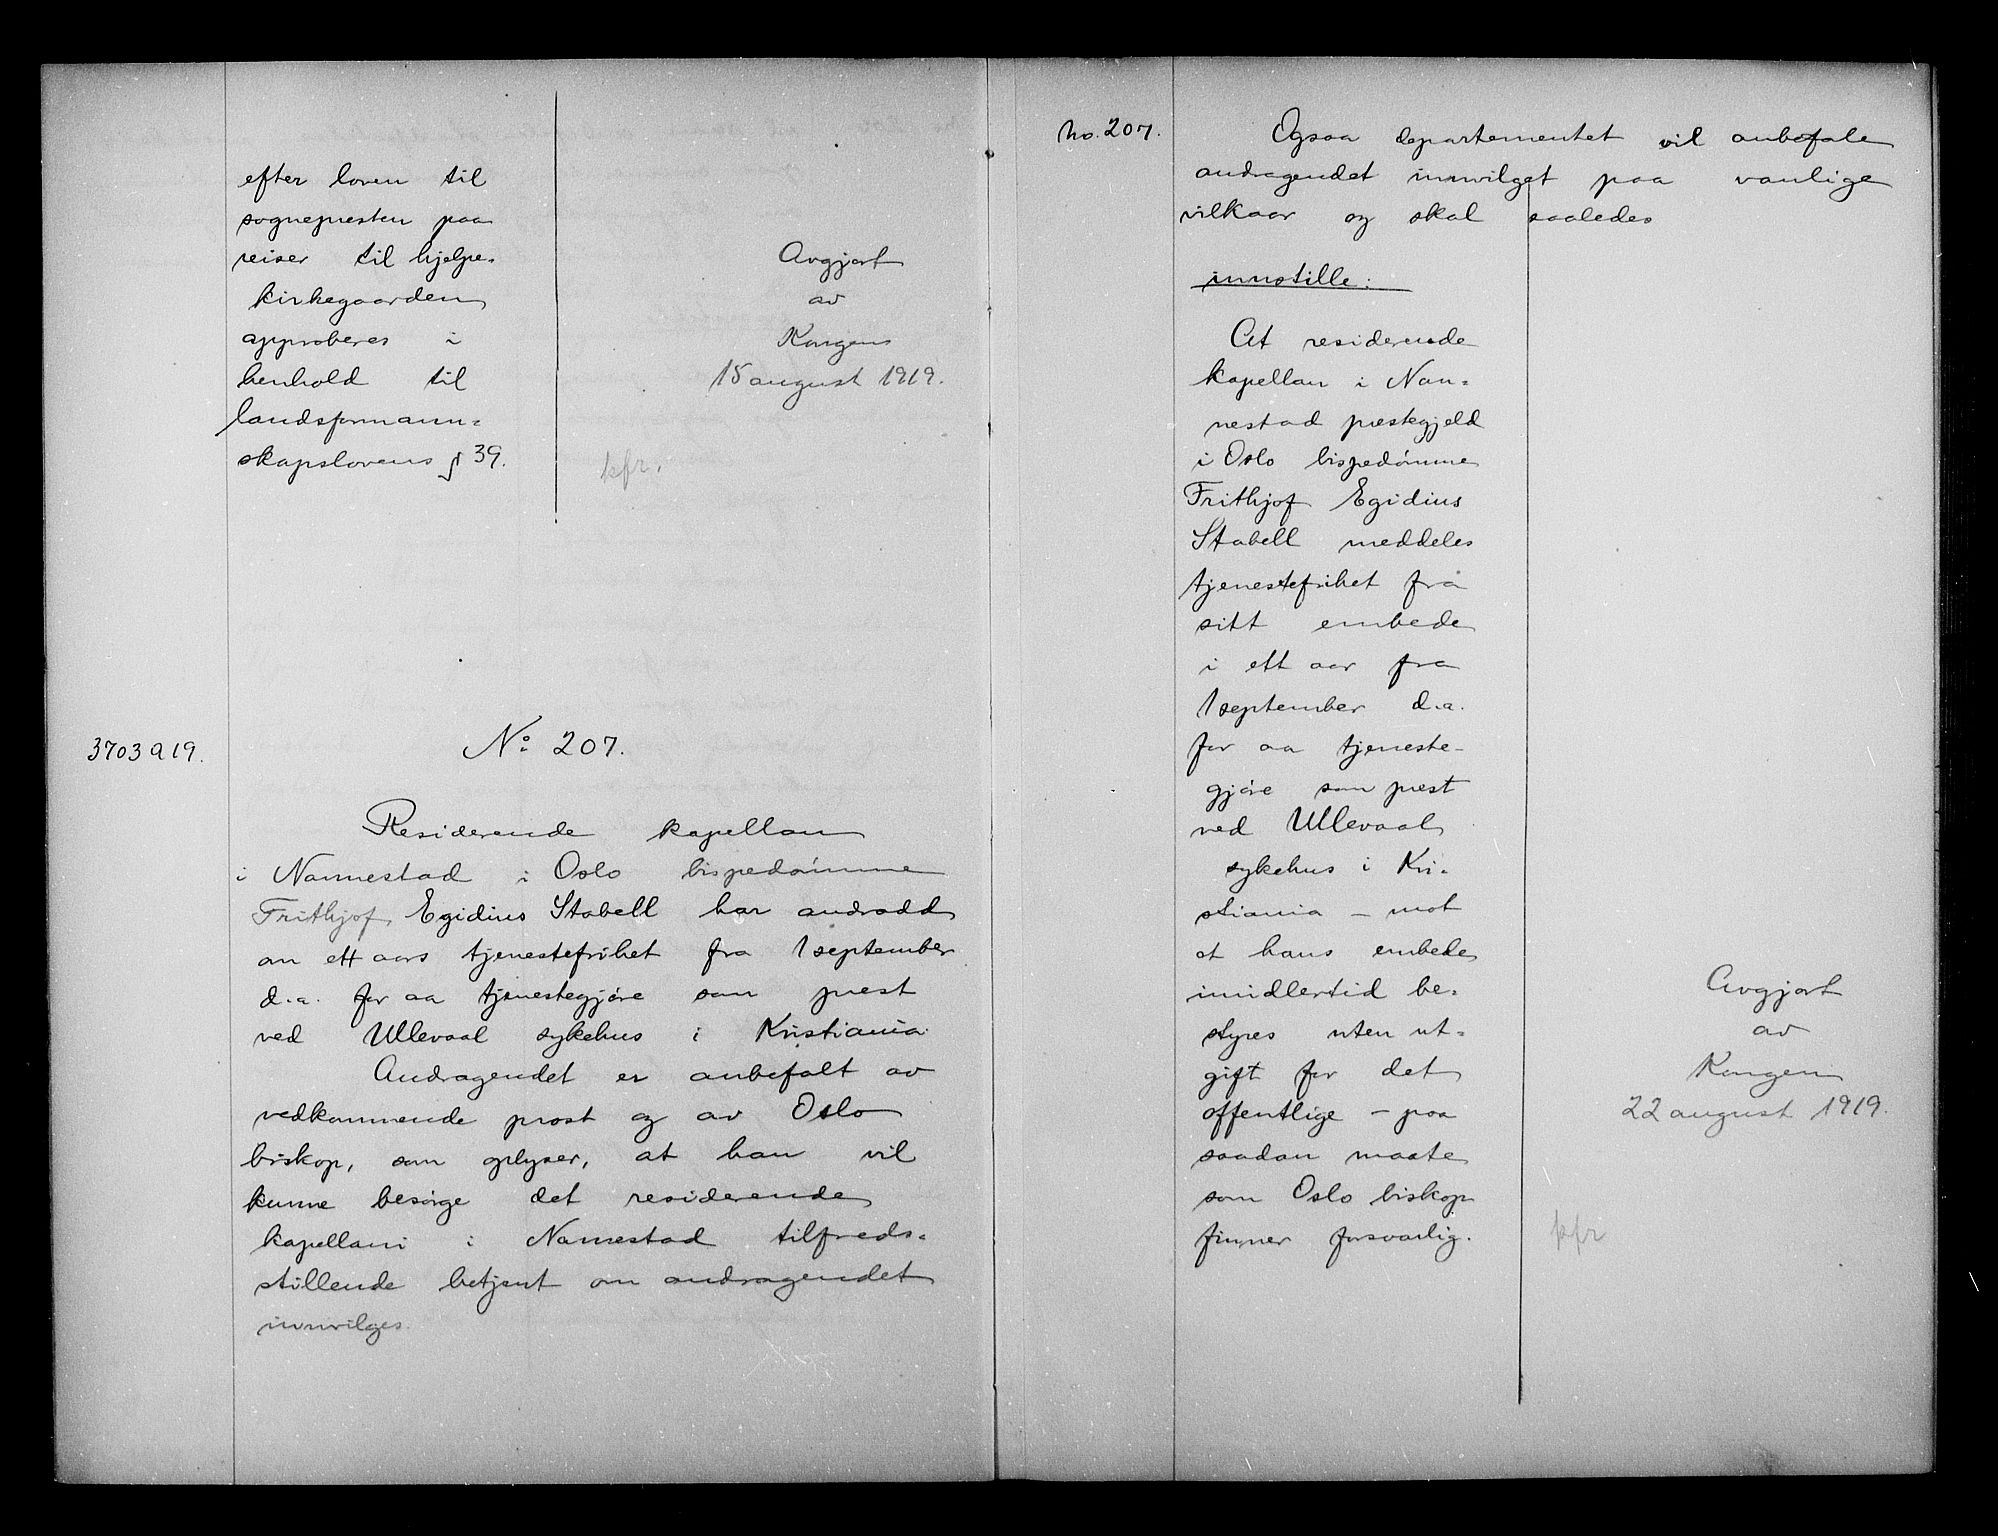 efter loven til
sognepresten paa
reiser til hjelpe-
kirkegaarden
approberes i
henhold til
landsformann-
skapslovens § 39.
Avgjort
av
Kongen
15 august 1919.
kfr.
3703 a 19.
No 207.
Residerende kapellan
i Nannestad i Oslo bispedømme
Frithjof Egidius Stabell har andradd
om ett aars tjenestefrihet fra 1 september
d.a. for aa tjenestegjøre som prest
ved Ullevaal sykehus i Kristiania.
Andragendet er anbefalt av
vedkommende prost og av Oslo
biskop, som oplyser, at han vil
kunne besørge det residerende
kapellani i Nannestad tilfreds-
stillende betjent om andragendet
innvilges.
no. 207.
Ogsaa departementet vil anbefale
andragendet innvilget paa vanlige
vilkaar og skal saaledes
innstille:
At residerende
kapellan i Nan-
nestad prestegjeld
i Oslo bispedømme
Frithjof Egidius
Stabell meddeles
tjenestefrihet fra
sitt embede
i ett aar fra
1 september d.a.
for aa tjeneste-
gjøre som prest
ved Ullevaal
sykehus i Kri-
stiania – mot
at hans embede
imidlertid be-
styres uten ut-
gift for det
offentlige – paa
saadan maate
som Oslo biskop
finner forsvarlig.
Avgjort
av
Kongen
22 august 1919.
kfr